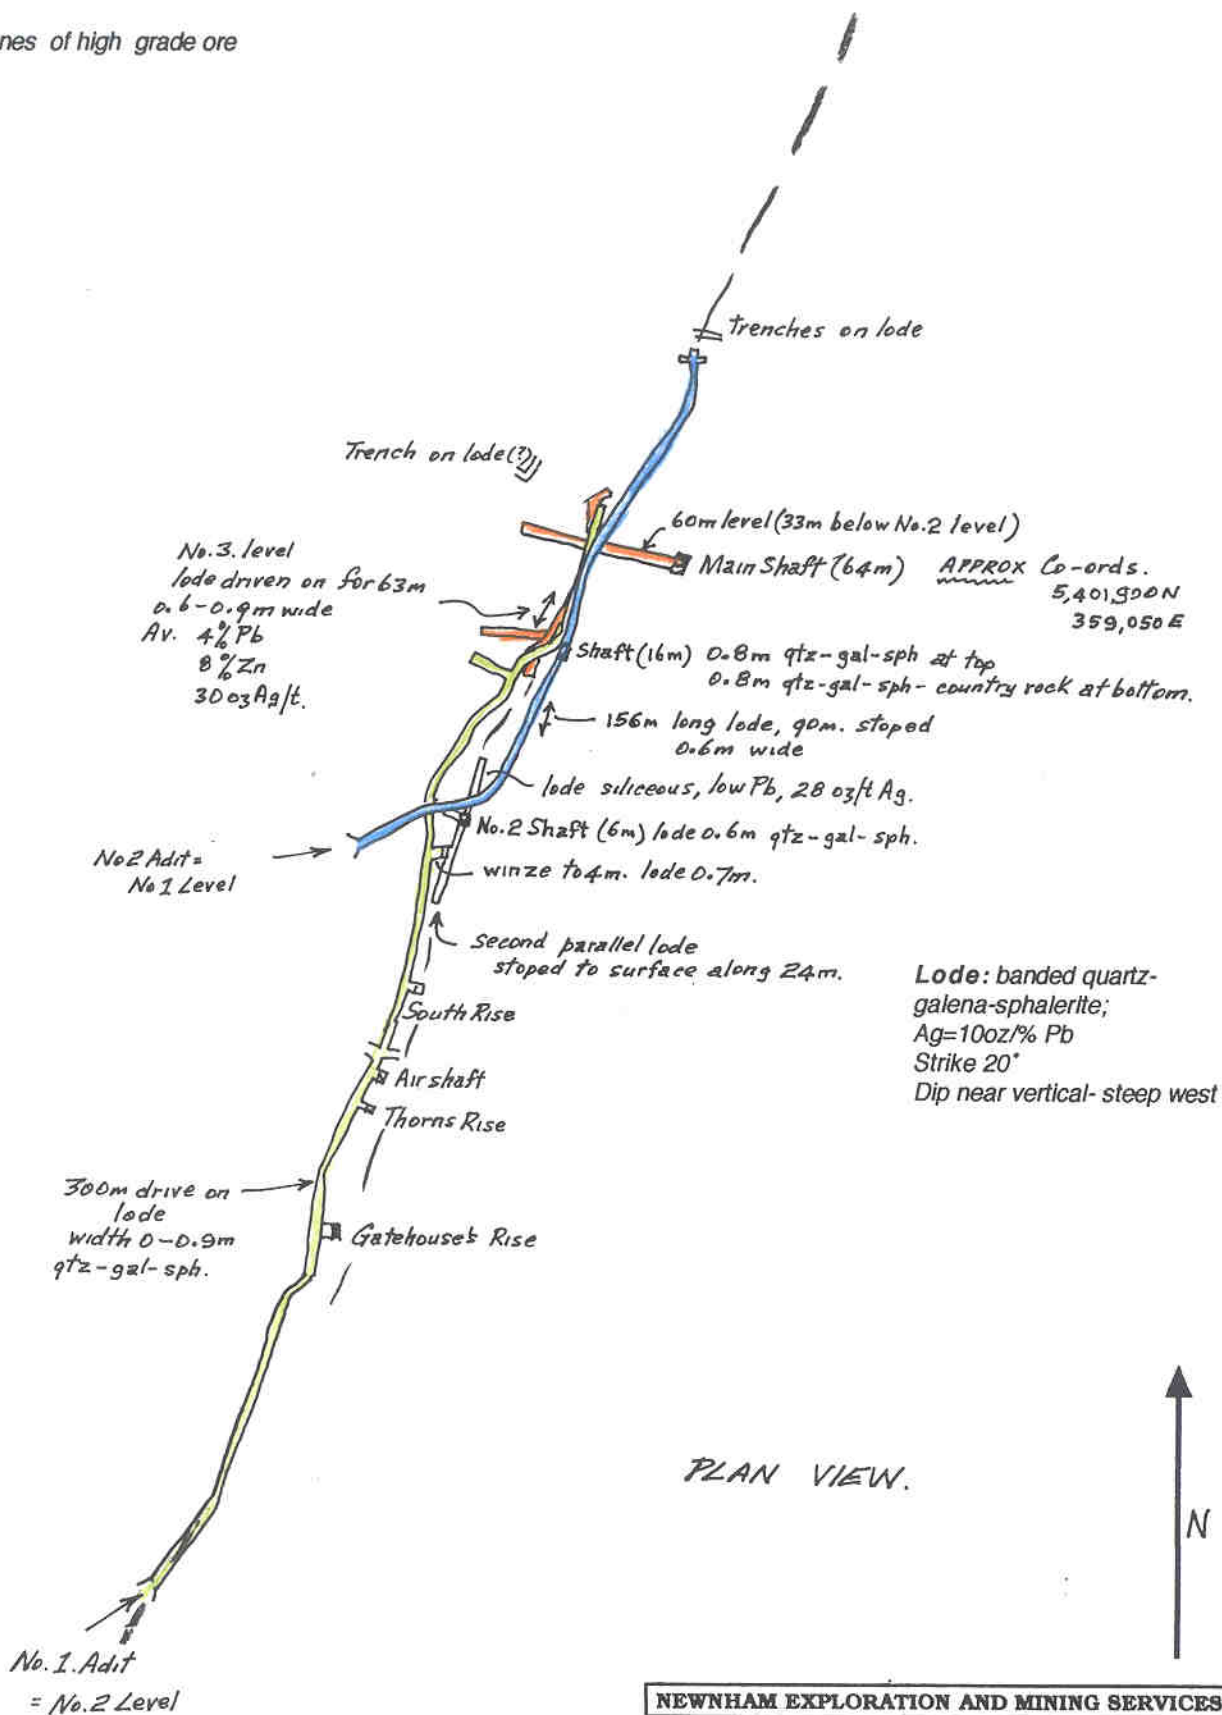 nes of high grade ore
Trenches on lode
Trench on lode (?)
60m level (33m below No.2 level)
Main Shaft (64m) APPROX Co-ords.
5,401,900N
359,050E
No.3. level
lode driven on for 63m
0.6-0.9m wide
Av. 4% Pb
8% Zn
30 oz Ag/t.
Shaft (16m) 0.8m qtz-gal-sph at top
0.8m qtz-gal-sph-country rock at bottom.
156m long lode, 90m. stoped
0.6m wide
lode siliceous, low Pb, 28 oz/t Ag.
No.2 Shaft (6m) lode 0.6m qtz-gal-sph.
No2 Adit =
No 1 Level
winze to 4m. lode 0.7m.
second parallel lode
stoped to surface along 24m.
Lode: banded quartz-
galena-sphalerite;
Ag=10oz/% Pb
Strike 20°
Dip near vertical- steep west
South Rise
Airshaft
Thorns Rise
300m drive on
lode
width 0-0.9m
qtz-gal-sph.
Gatehouse's Rise
PLAN VIEW.
N
No.1.Adit
= No.2 Level
NEWNHAM EXPLORATION AND MINING SERVICES